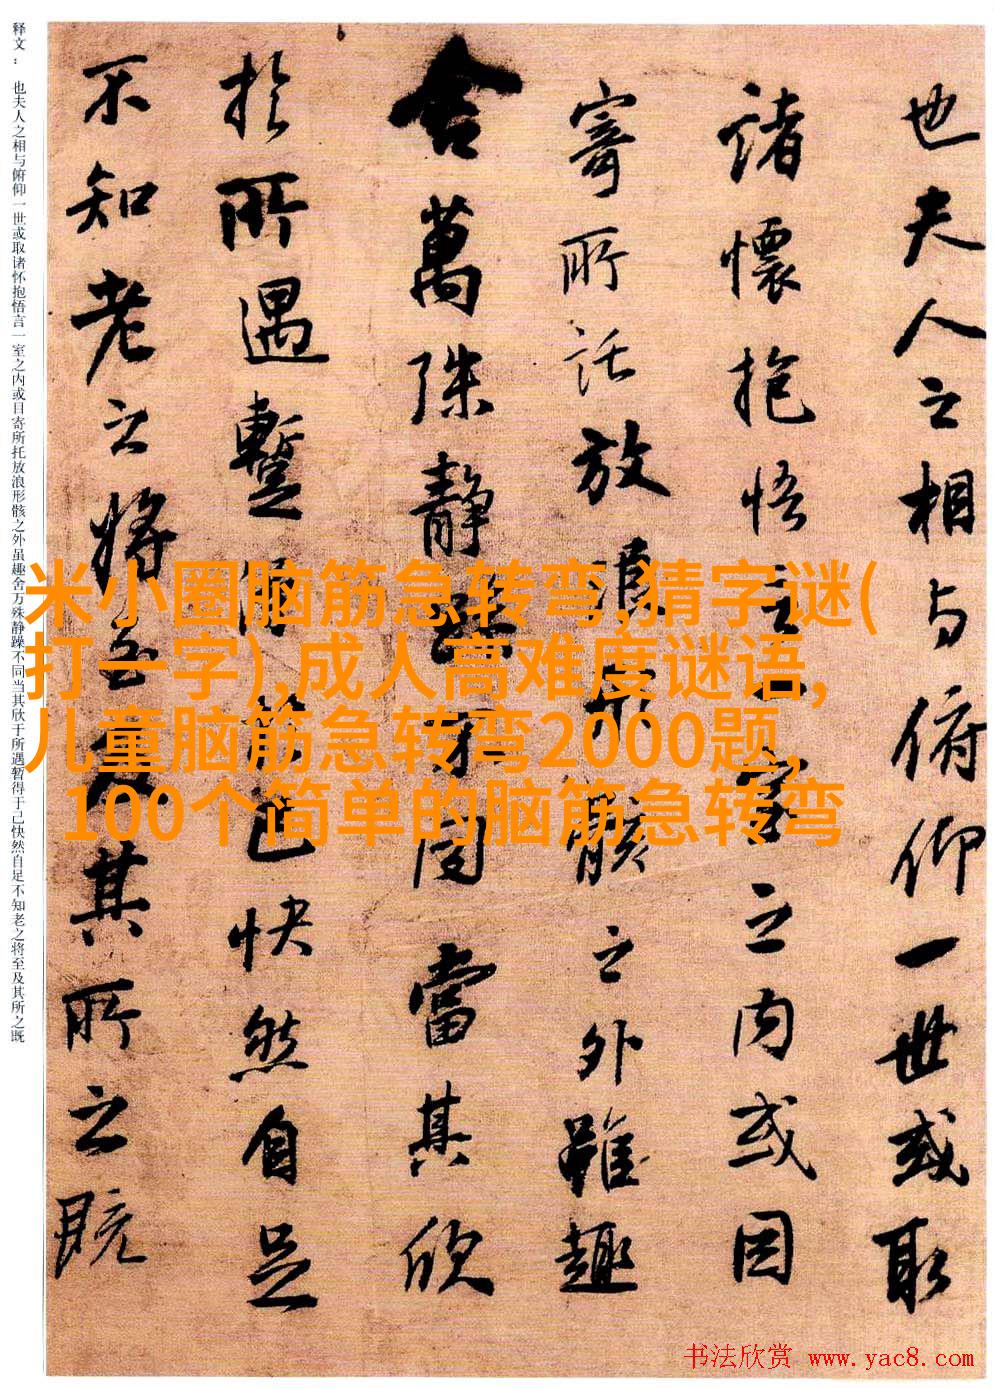 也夫人之相与俯仰一世或取
諸懷抱悟言一室之内或因
寄所託放浪形骸之外雖趣
舍萬殊静躁不同當其欣
於所遇暫得於己快然自足
不知老之将至及其所之既
释文：也夫人之相与俯仰一世或取诸怀抱悟言一室之内或因寄所托放浪形骸之外虽趣舍万殊静躁不同当其欣于所遇暂得于己快然自足不知老之将至及其所之既
米小圈脑筋急转弯,猜字谜(
打一字),成人高难度谜语,
儿童脑筋急转弯2000题,
100个简单的脑筋急转弯
书法欣赏 www.yac8.com